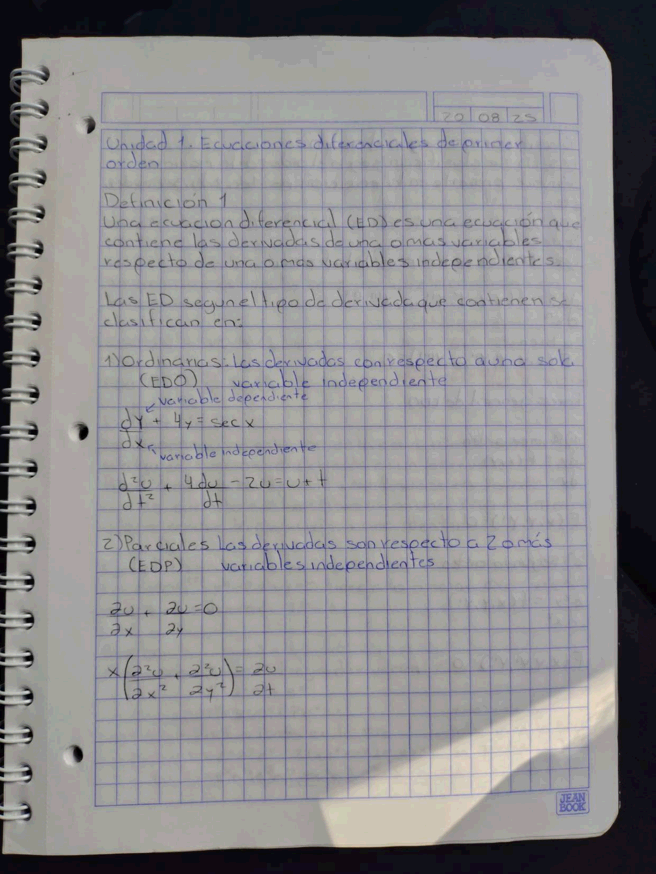 20 08 25
Unidad 1. Ecuaciones diferenciales de primer
orden
Definición 1
Una ecuacion diferencial (ED) es una ecuación que
contiene las derivadas de una o mas variables
respecto de una o mas variables independientes.
Las ED segun el tipo de derivada que contienen se
clasifican en:
1) Ordinarias: Las derivadas con respecto a una sola
(EDO) variable independiente
variable dependiente
dy/dx + 4y = sec x
variable independiente
d²u/dt² + 4du/dt - 2u = u + t
2) Parciales Las derivadas son respecto a 2 o más
(EDP) variables independientes
∂u/∂x + ∂u/∂y = 0
x(∂²u/∂x² + ∂²u/∂y²) = ∂u/∂t
JEAN
BOOK